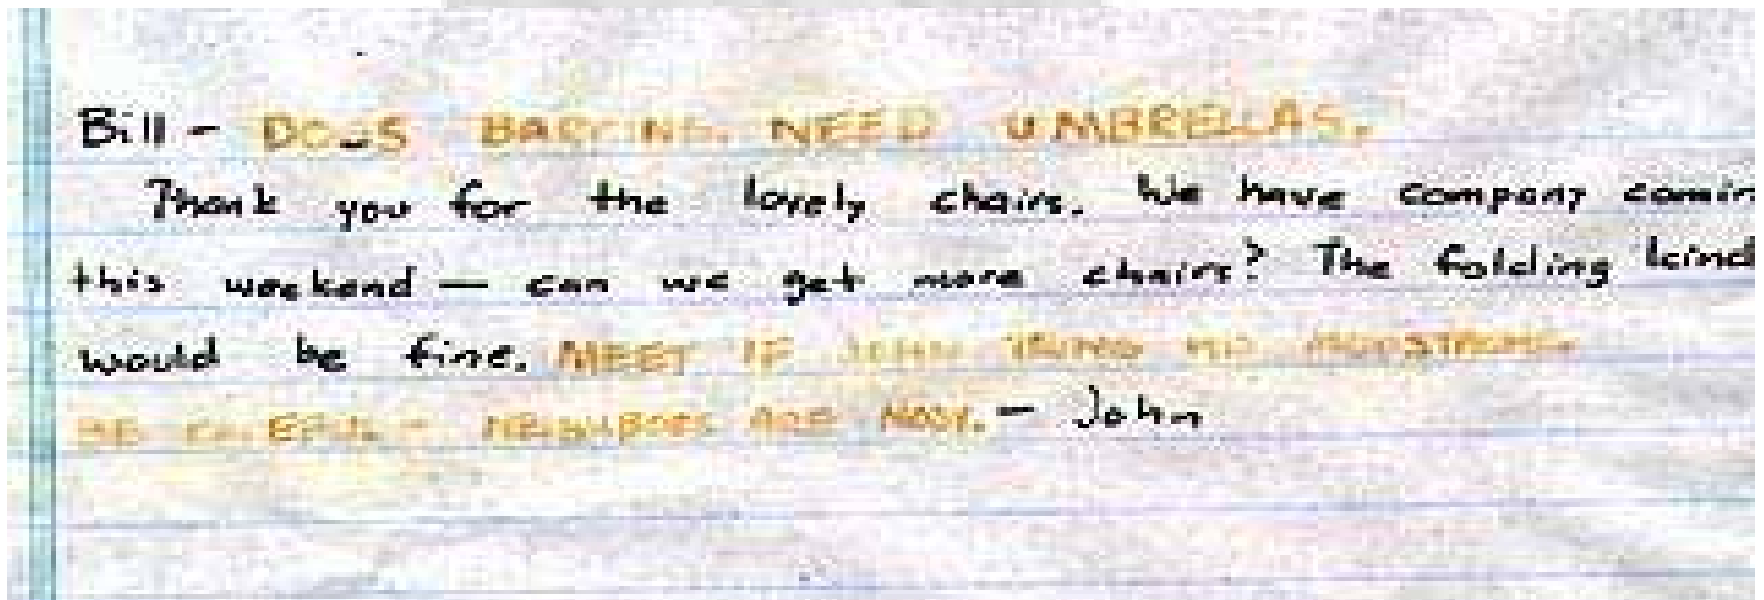 Bill - DOGS BARKING. NEED UMBRELLAS.
Thank you for the lovely chairs. We have company comin
this weekend — can we get more chairs? The folding kind
would be fine. MEET IF JOHN NO
BE CAREFUL - NEIGHBORS ARE NOSY. - John